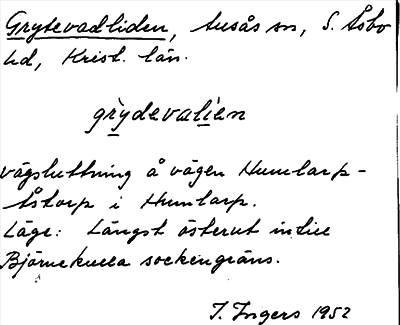 Grytevadliden, Ausås sn, S. Åsbo
hd, Krist. län.
grydevalien
vägsluttning å vägen Humlarp-
Åstorp i Humlarp.
Läge: Längst österut intill
Björnekulla sockengräns.
I. Ingers 1952